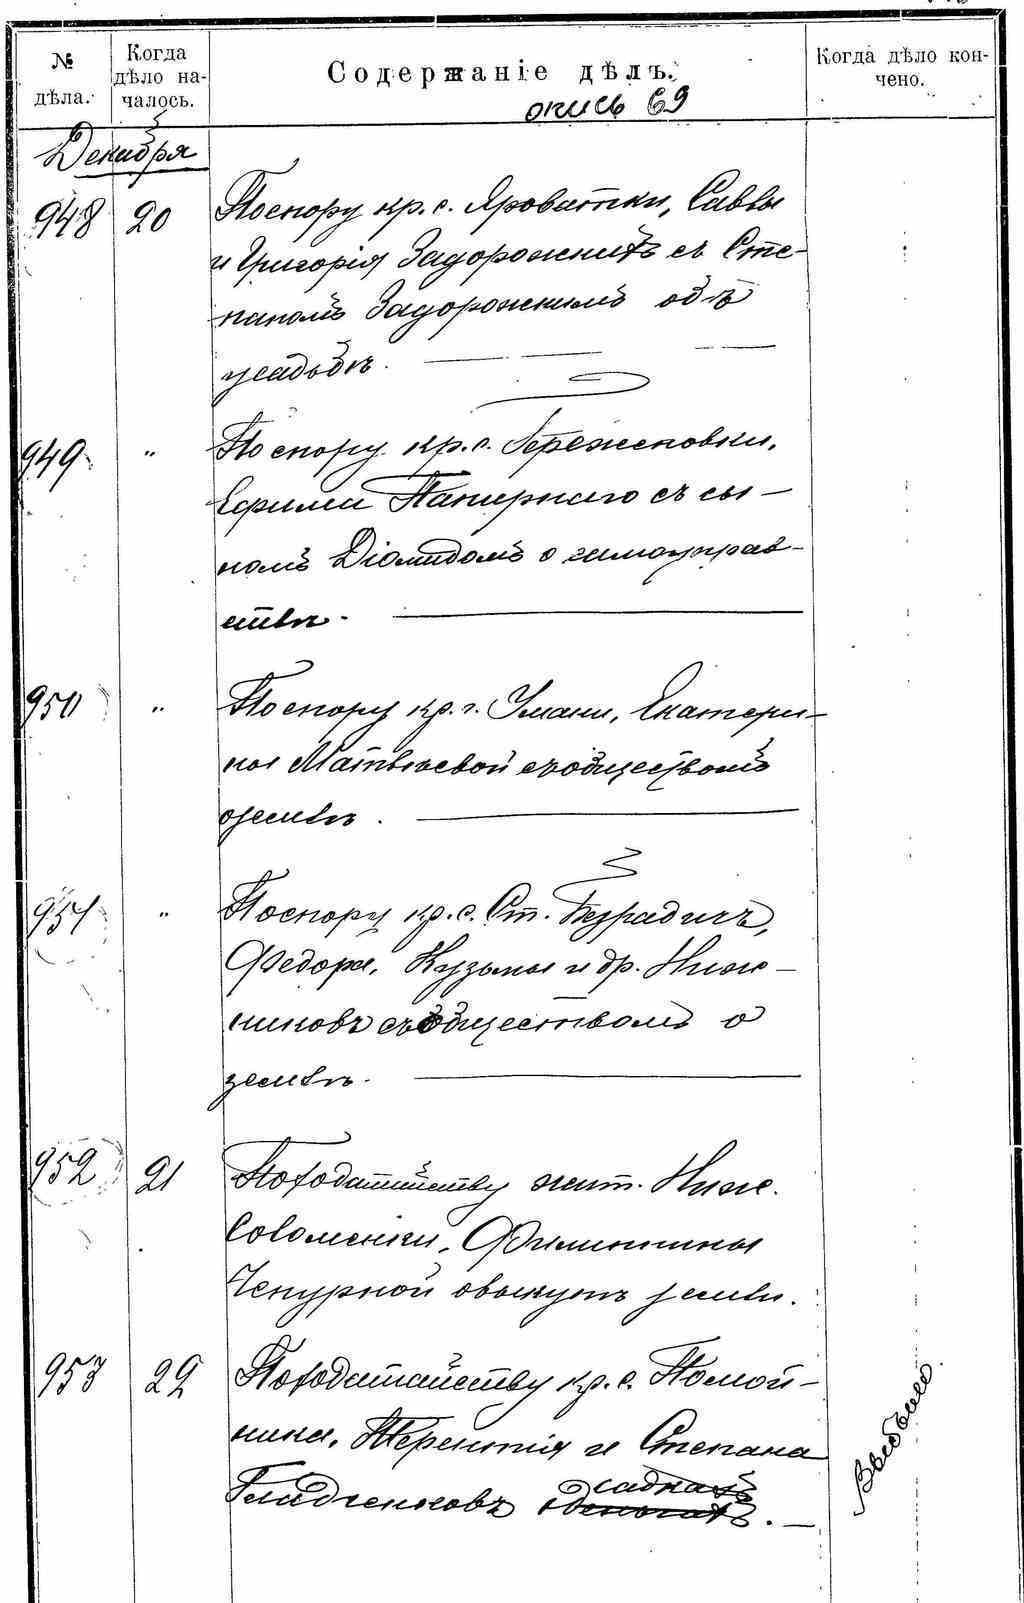 № дѣла.
Когда дѣло на-
чалось.
Содержаніе дѣлъ.
Когда дѣло кон-
чено.
опись 69
Декабря
948 20 По спору кр. с. Яроватки, Саввы
и Григорія Задорожнихъ съ Сте-
паномъ Задорожнимъ объ
усадьбѣ.
949 " По спору кр. с. Бережиновки,
Ефима Папернаго съ сы-
номъ Діомидомъ о самоуправ-
ствѣ.
950 " По спору кр. г. Умани, Екатери-
ны Матвѣевой съ обществомъ
о землѣ.
951 " По спору кр. с. Ст. Безрадичъ,
Федора, Кузьмы и др. Ниж-
никовъ съ обществомъ о
землѣ.
952 21 По ходатайству жит. Ниж.
Соломенки, Филиппины
Чепурной о выкупѣ земли.
953 22 По ходатайству кр. с. Помой-
ника, Терентія и Степана
Гладченковъ о
деньгахъ.
Выбыло